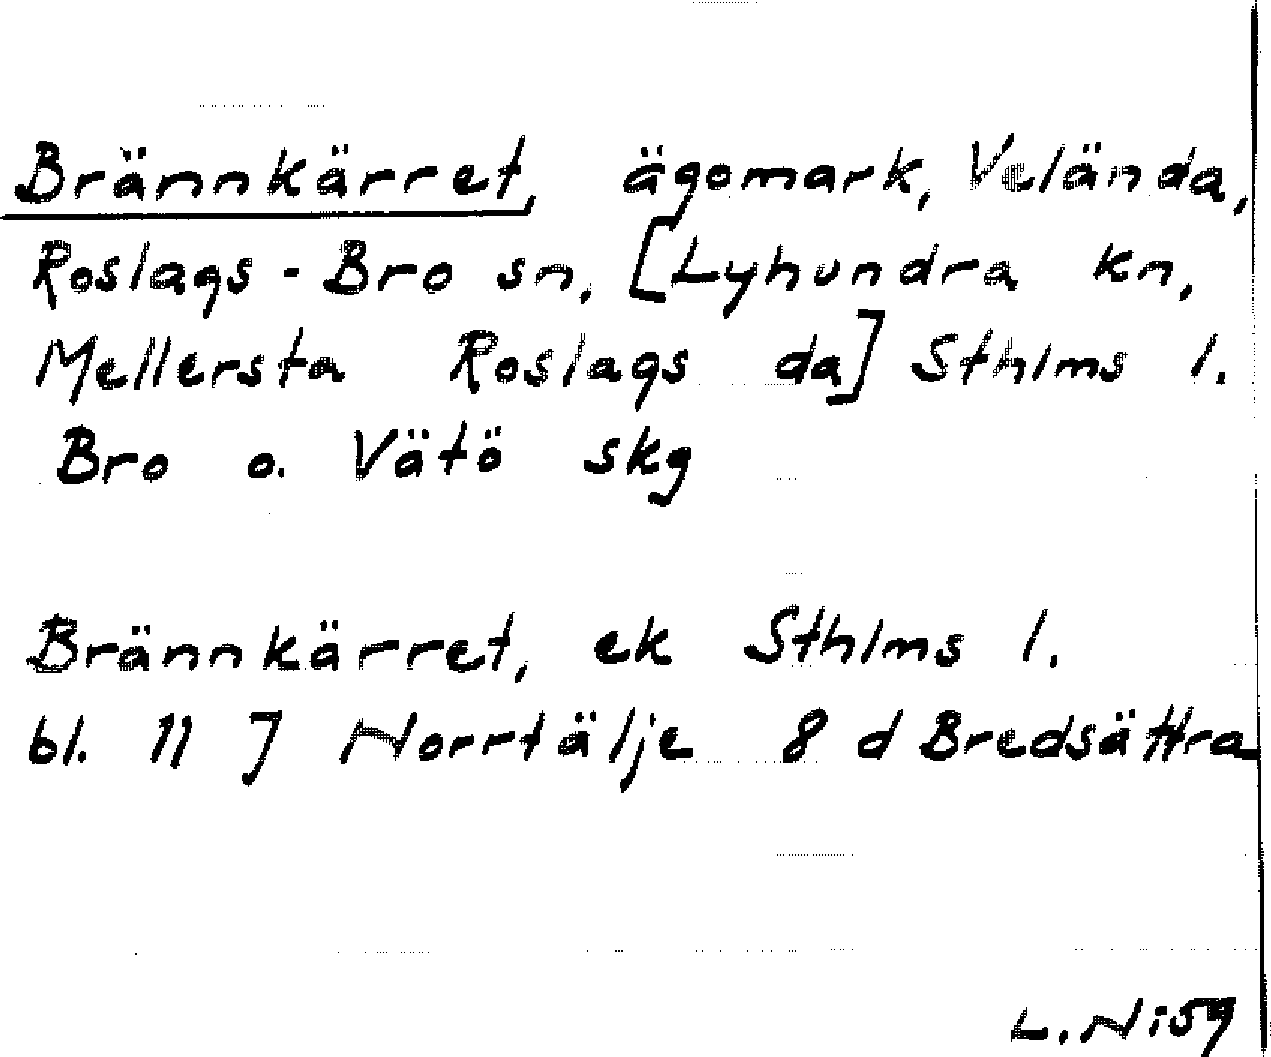 Brännkärret, ägomark, Velända,
Roslags - Bro sn, [Lyhundra kn,
Mellersta Roslags da] Sthlms l.
Bro o. Vätö skg
Brännkärret, ek Sthlms l.
bl. 11 J Norrtälje 8 d Bredsättra
L. Ni59